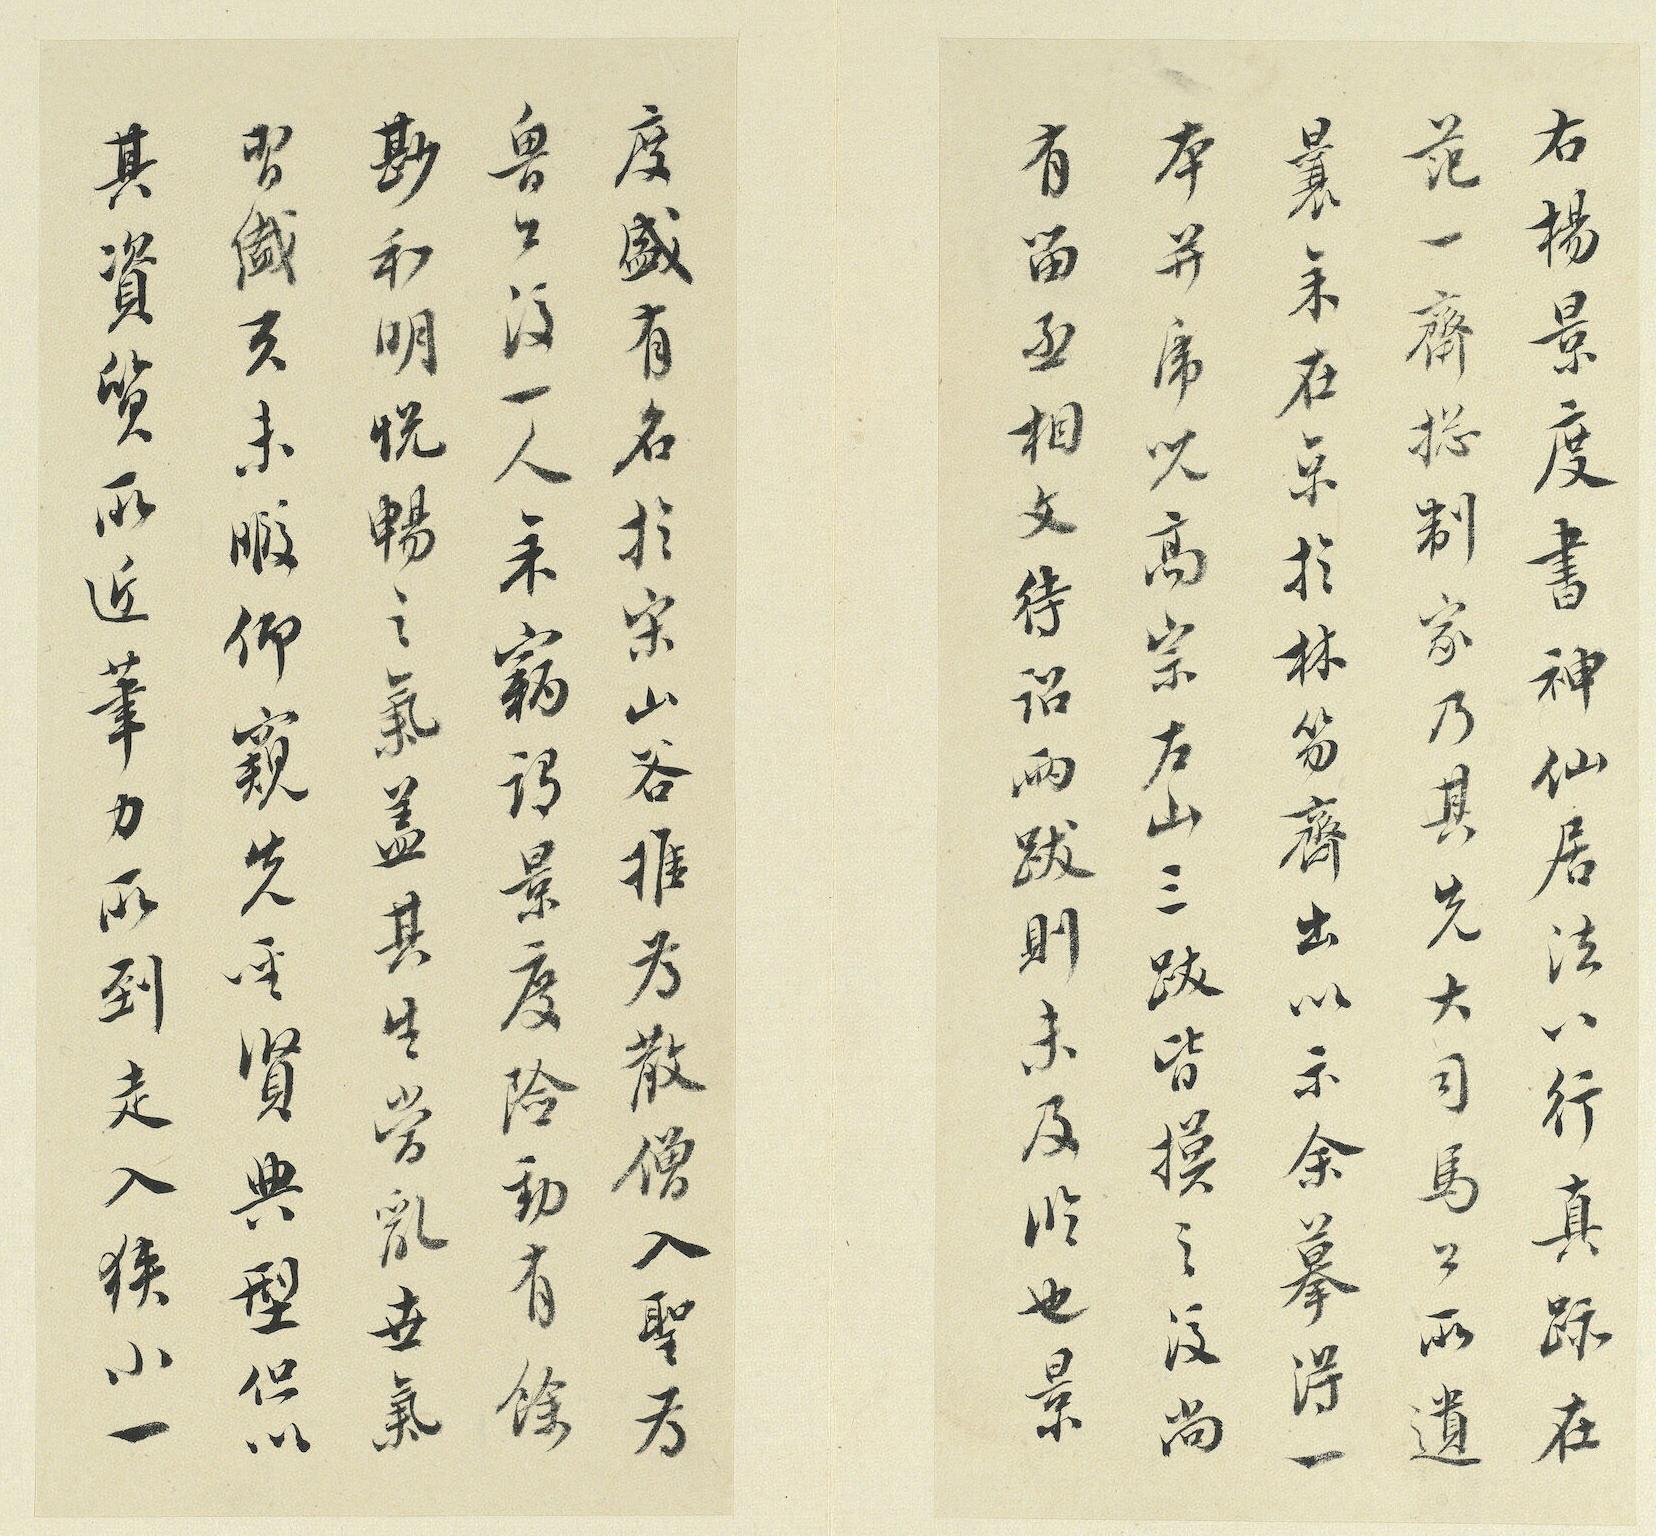 右楊景度書神仙居法八行真跡在
范一齋總制家乃其先大司馬公所遺
曩余在京於林芴齋出以示余摹得一
本并席以高宗左山三跋皆摸之後尚
有留丞相文待詔兩跋則未及臨也景
度盛有名於宋山谷推為散僧入聖為
魯公後一人余竊謂景度險勁有餘
尠和明悅暢之氣蓋其生當亂世氣
習儳互未暇仰窺先聖賢典型但以
其資質所近筆力所到走入狹小一